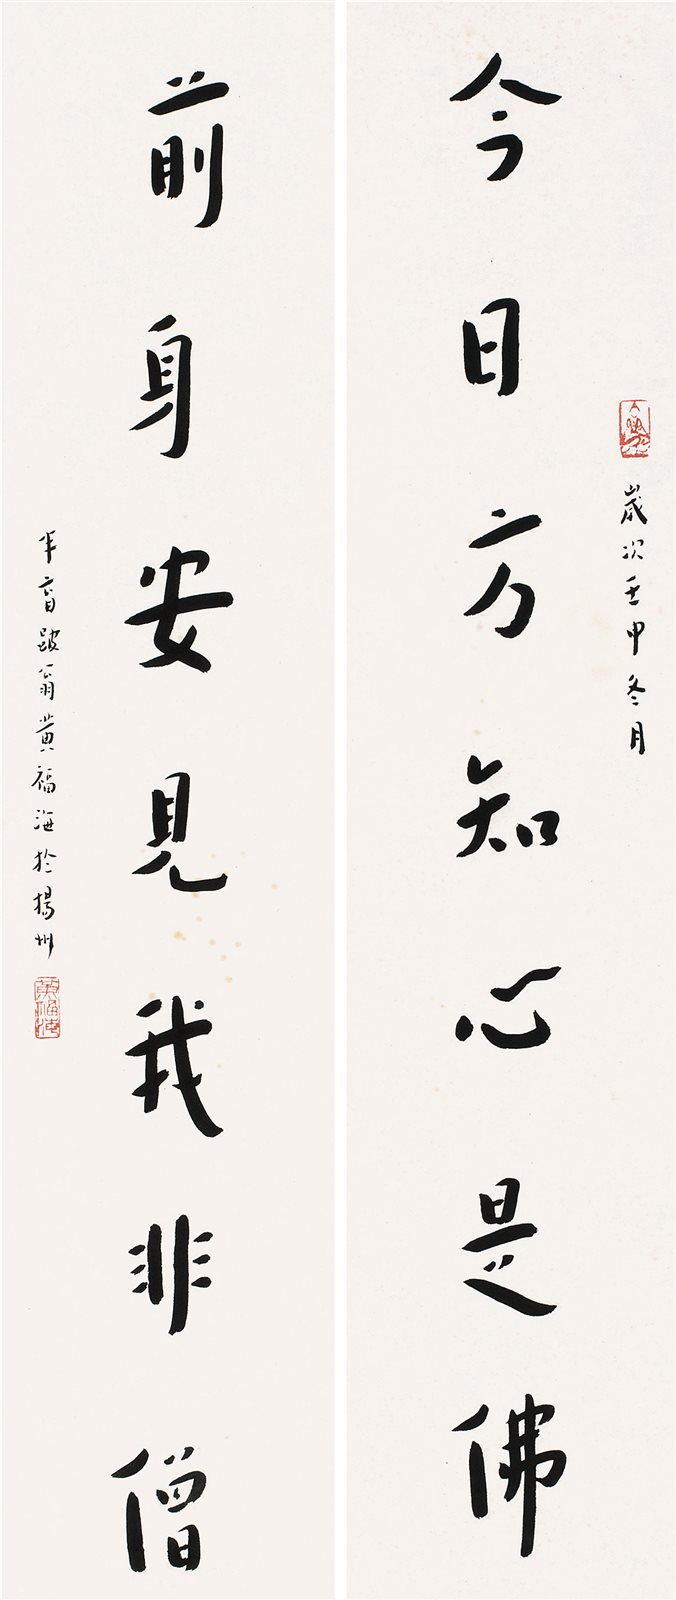 歲次壬申冬月
今日方知心是佛
前身安見我非僧
半盲跛翁黃福海於揚州
黃福海